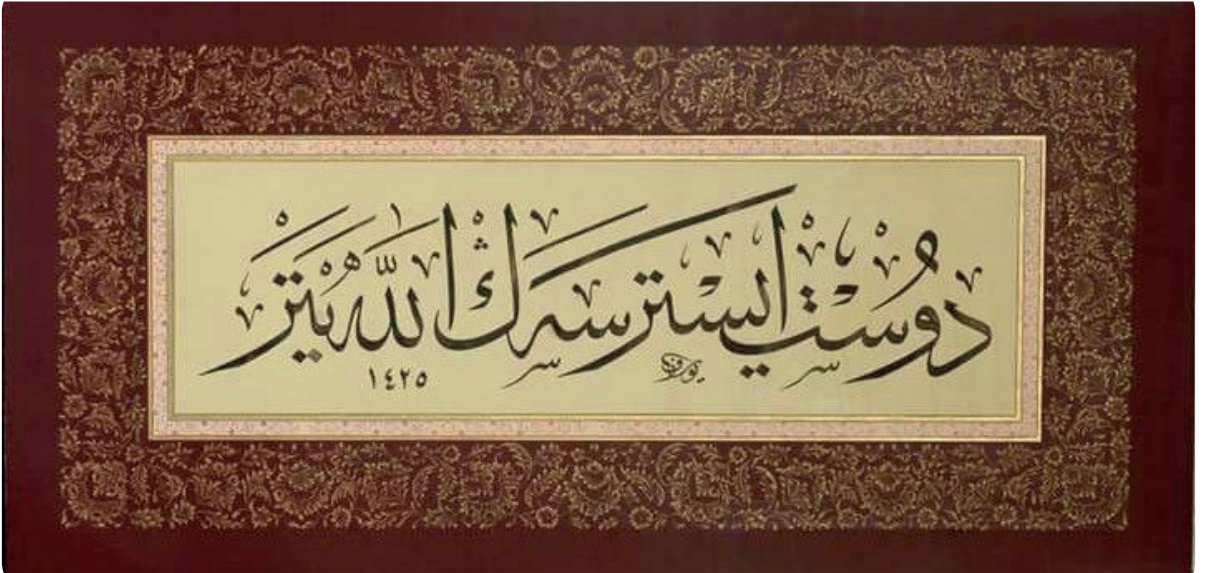 دوست ايسترسەڭ الله يتر
١٤٢٥